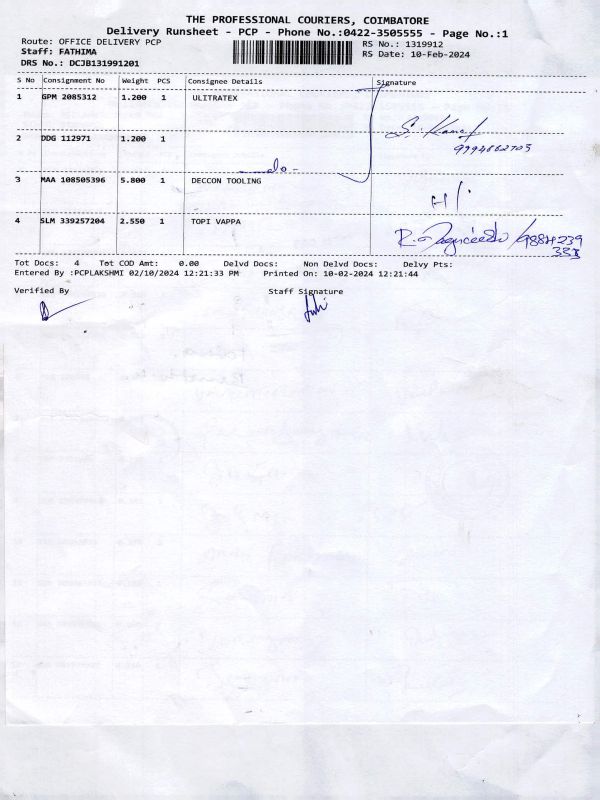 THE PROFESSIONAL COURIERS, COIMBATORE
Delivery Runsheet - PCP - Phone No.:0422-3505555 - Page No.:1
Route: OFFICE DELIVERY PCP
Staff: FATHIMA
DRS No.: DCJB131991201
RS No.: 1319912
RS Date: 10-Feb-2024
S No Consignment No Weight PCS Consignee Details Signature
1 GPM 2085312 1.200 1 ULITRATEX
2 DDG 112971 1.200 1
do -
3 MAA 108505396 5.800 1 DECCON TOOLING
4 SLM 339257204 2.550 1 TOPI VAPPA
Tot Docs: 4 Tot COD Amt: 0.00 Delvd Docs: Non Delvd Docs: Delvy Pts:
Entered By :PCPLAKSHMI 02/10/2024 12:21:33 PM Printed On: 10-02-2024 12:21:44
Verified By Staff Signature